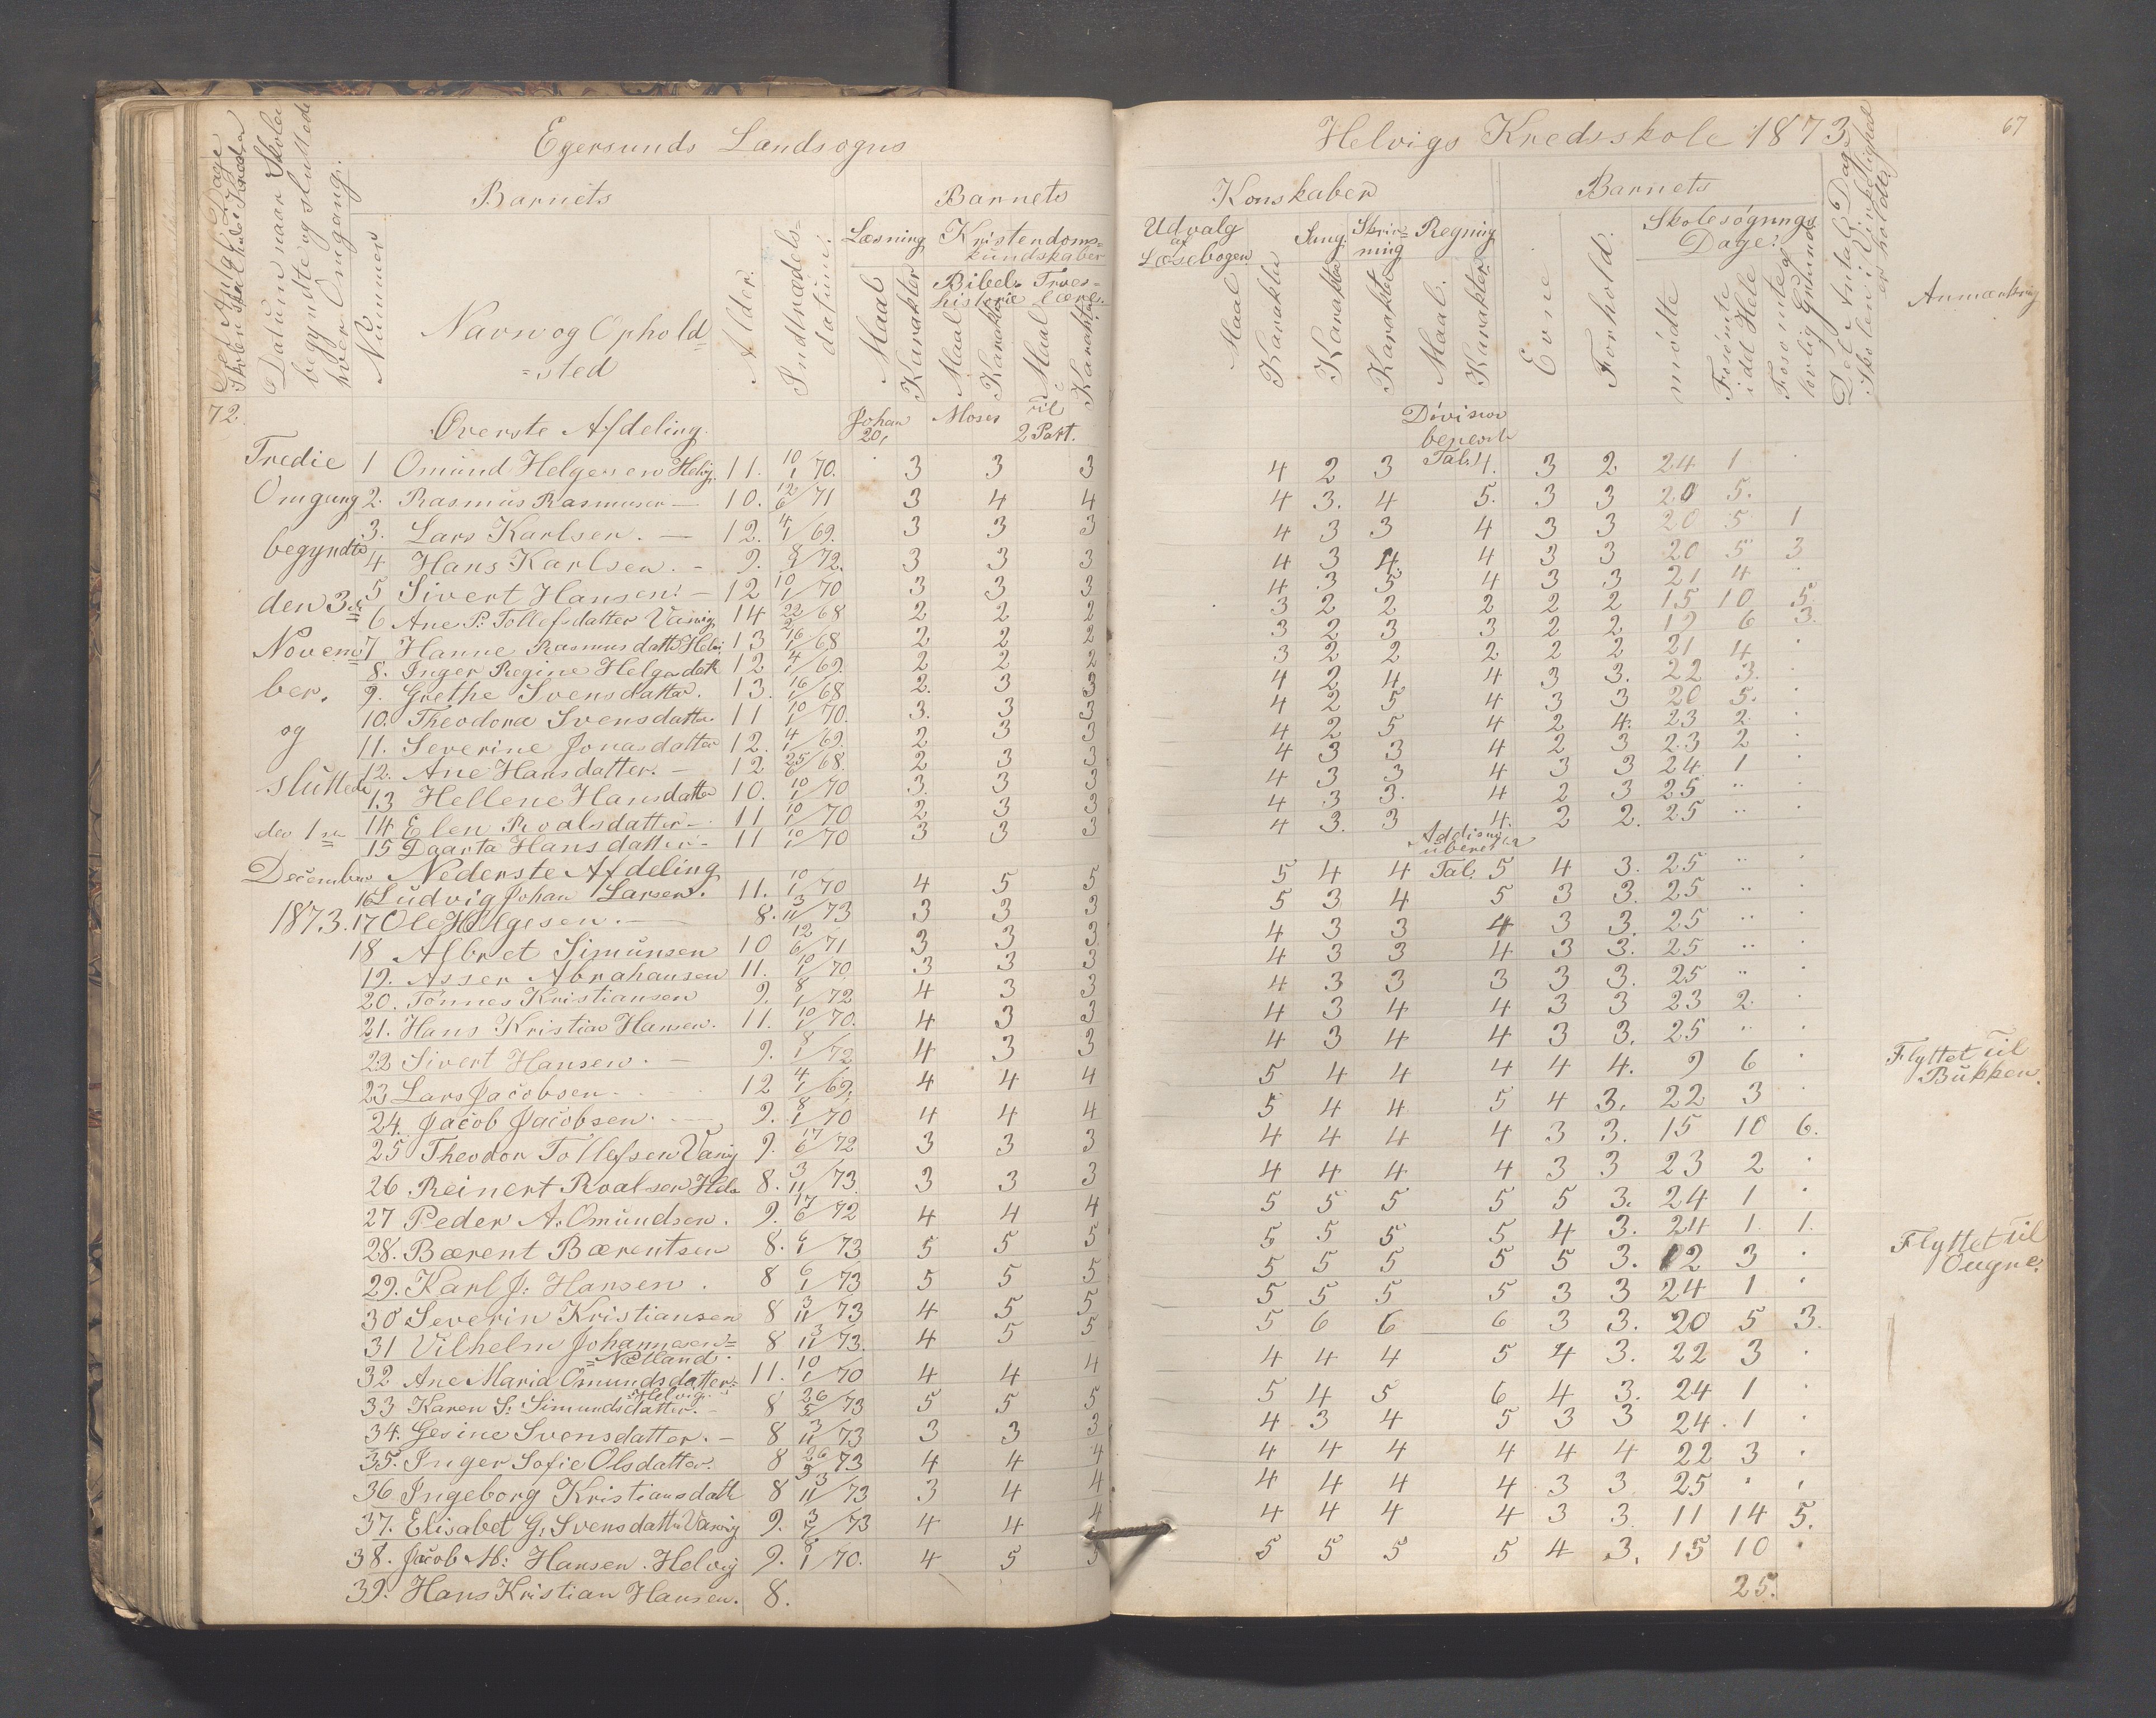 Egersunds Landsogns
Helvigs Kredsskole 1873
67
Det Antal Dage
Skolen skal holdes i Kredsen
Datum naar Skolen
begyndte og sluttede
hver Omgang.
Nummer
Barnets
Navn og Ophold=
=sted
Alder.
Indtrædels=
datum.
Barnets
Læsning
Maal
Karakter
Kristendoms=
kundskaber
Bibel=
historie
Troes=
lære
Maal
Karakter
Maal
Karakter
Konskaber
Udvalg
af
Læsebogen
Maal
Karakter
Sang.
Karakter
Skriv=
ning
Karakter
Regning
Maal.
Karakter
Barnets
Evne
Forhold.
Skolesøgnings
Dage.
mødte
Forsømte
i det Hele
Forsømte af
lovlig Grund
Det Antal Dage
Skolen i Virkelighed
er holdt
Anmærkning
72.
Øverste Afdeling.
Johan
20,
Moses
til
2 Part.
Division
benevnte
Tal.
Tredie
Omgang
begyndte
den 3die
Novem=
ber.
og
sluttede
den 1ste
December
1873.
1 Omund Helgesen Helvig. 11. 10/1 70. 3 3 3 4 2 3 4. 3 2 24 1 .
2. Rasmus Rasmusen — 10. 12/6 71 3 4 4 4 3. 4 5. 3 3 20 5.
3. Lars Karlsen. — 12. 4/1 69. 3 3 3 4 3 3 4 3 3 20 5 1
4 Hans Karlsen. - 9. 8/1 72. 3 3 3 4 3 4. 4 3 3 20 5 3
5 Sivert Hansen. — 12 10/1 70 3 3 3 4 3 5 4 3 3 21 4 .
6 Ane P. Tollefsdatter Vasvig 14 22/2 68 2 2 2 3 2 2 2 2 2 15 10 5.
7 Hanne Rasmusdatter Helv. 13 16/1 68 2 2 2 3 2 3 3 2 2 19 6 3.
8. Inger Regine Helgesdatt 12 4/1 69. 2 2 2 3 2 2 2 2 2 21 4 .
9. Grethe Svensdatter. 13. 16/1 68 2. 3 3 4 2 4 4 3 3. 22 3. .
10. Theodora Svensdatter 11 10/1 70. 3. 3 3 4 2 5 4 3 3 20 5. .
11. Severine Jonasdatter 12. 4/1 69. 2 3 3 4 2 5 4 2 4. 23 2. .
12. Ane Hansdatter. — 12 25/6 68. 2 3 3 4 3 3 4 2 3 23 2 .
13 Hellene Hansdatter 10. 10/1 70 3. 3 3 4 3 3 4 3 3 24 1 .
14 Elen Roalsdatter - 11 10/1 70 2 3 3 4 3 3. 4 2 3 25 .. .
15 Daarta Hansdatter - 11 10/1 70 3 3 3 4 3. 3 4. 2 2. 25 .. .
Nederste Afdeling
Addision
uberev
Tal.
16 Ludvig Johan Larsen. 11. 10/1 70 4 5 5 5 4 4 5 4 3. 25 .. .
17 Ole Helgesen. — 8. 3/11 73 3 3 3 5 3 4 5 3 3. 25 .. .
18 Albret Simunsen 10 12/6 71 3 3 3 4 3 3 4 3 3. 25 .. .
19. Asser Abrahansen 11. 10/1 70 3 3 3 4 3 3 4 3 3. 25 .. .
20. Tønnes Kristiansen 9. 8/1 72 4 3 3 4 3 3 3 3 3. 25 .. .
21. Hans Kristian Hansen. 11. 10/1 70. 4 3 3 4 3 4 4 3 3 23 2. .
22 Sivert Hansen. — 9. 8/1 72 4 3 3 4 3 4 4 3 3. 25 .. .
23 Lars Jacobsen. 12 4/1 69. 4 4 4 5 4 4 4 4 4. 9 6 . Flyttet til
Bukken.
24. Jacob Jacobsen. 9. 8/1 70 4 4 4 5 4 4 5 4 3. 22 3 .
25 Theodor Tollefsen Vasvig 9. 17/6 72 3 3 3 4 4 4 4 3 3. 15 10 6.
26 Reinert Roalsen Helv 8. 3/11 73. 3 3 3 4 4 4 4 3 3 23 2 .
27 Peder A. Omundsen. 9. 17/6 72 4 4 4 5 5 5 5 5 3. 24 1 .
28. Bærent Bærentsen 8. 6/1 73 5 5 5 5 5 5 5 4 3. 24 1. 1.
29. Karl J. Hansen. 8 6/1 73 5 5 5 5 5 5 5 5 3. 12 3 . Flyttet til
Ougne.
30 Severin Kristiansen 8 3/11 73 4 5 5 5 5 5 5 3 3 24 1 .
31 Vilhelm Johannesen= 8 3/11 73. 4 5 5 5 6 6 6 3 3. 20 5 3.
=Nætland.
32 Ane Maria Omundsdatter= 11. 10/1 70 4 4 4 4 4 4 5 4 3. 22 3 .
=Helvig.
33 Karen S. Simundsdatter. - 8 26/5 73 5 5 5 5 4 5 6 4 3. 24 1 .
34. Gesine Svensdatter. — 8 3/11 73 3 3 3 4 3 4 5 3 3 24. 1 .
35. Inger Sofie Olsdatter. 8 26/5 73 4 4 4 4 4 4 4 4 4 22 3 .
36. Ingeborg Kristiansdatt 8 3/11 73 3 4 4 4 4 4 4 3 3. 25 . .
37. Elisabet G. Svensdatter Vasvig 9. 3/7 73 4 4 4 4 4 4 4 3 3. 11 14 5.
38. Jacob M. Hansen. Helvig 9. 8/1 70. 4 5 5 5 5 5 5 4 3. 15 10 .
39. Hans Kristian Hansen. 8. 25.